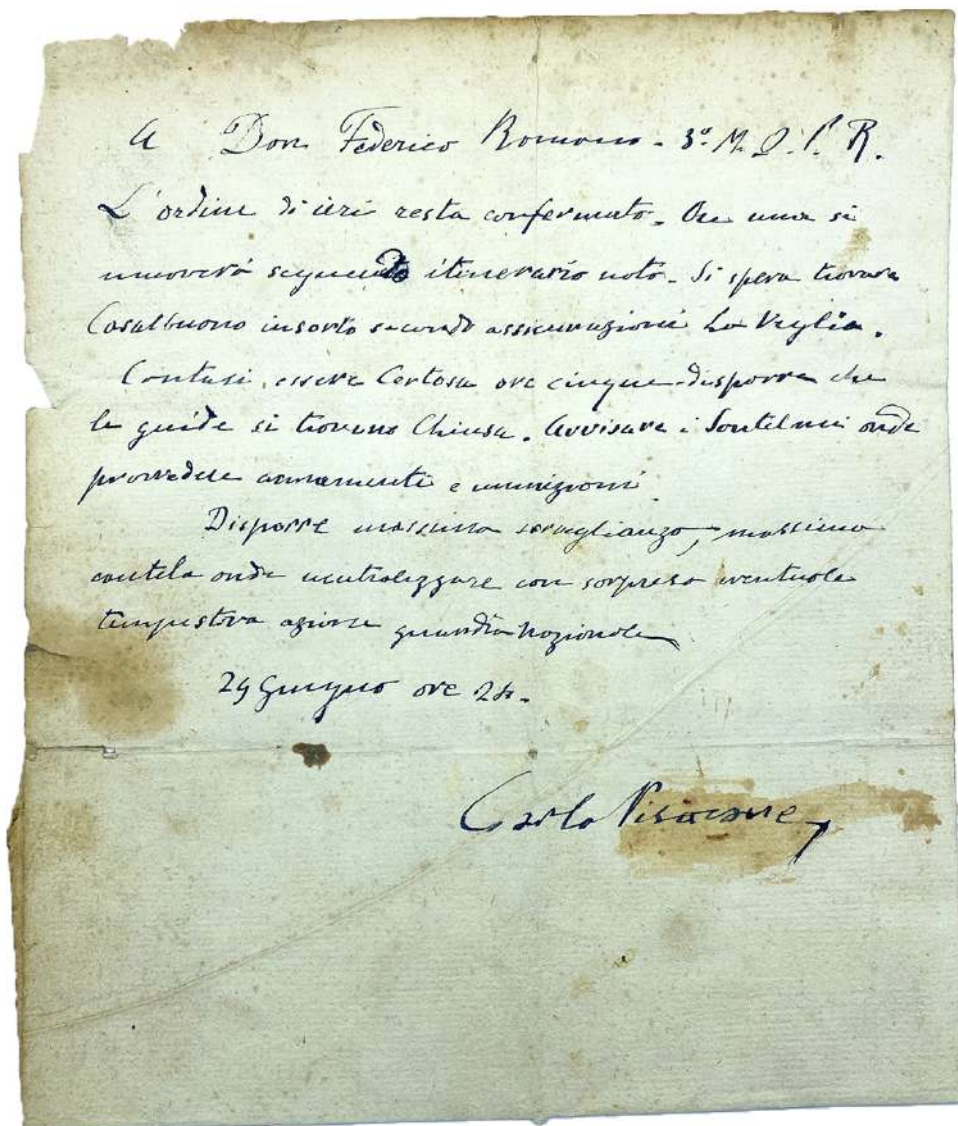 A Don Federico Romano - 3º M. Q. P. R.
L'ordine di ieri resta confermato. Ore una si
muoverà seguendo itinerario noto. Si spera trovare
Casalbuono insorto secondo assicurazioni La Veglia.
Contasi essere Certosa ore cinque - disporre che
le guide si trovino Chiusa. Avvisare i Santelmi onde
provvedere armamenti e munizioni.
Disporre massima sorveglianza, massima
cautela onde neutralizzare con sorpresa eventuale
tempestiva azione guardia nazionale
29 Giugno ore 24.
Carlo Pisacane